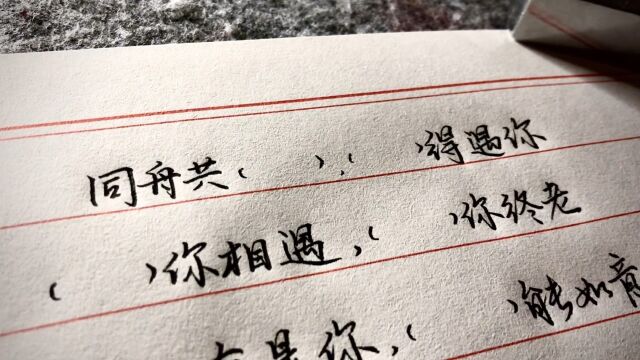 同舟共(　　),(　　)得遇你
(　　)你相遇,(　　)你终老
是你,(　　)能如